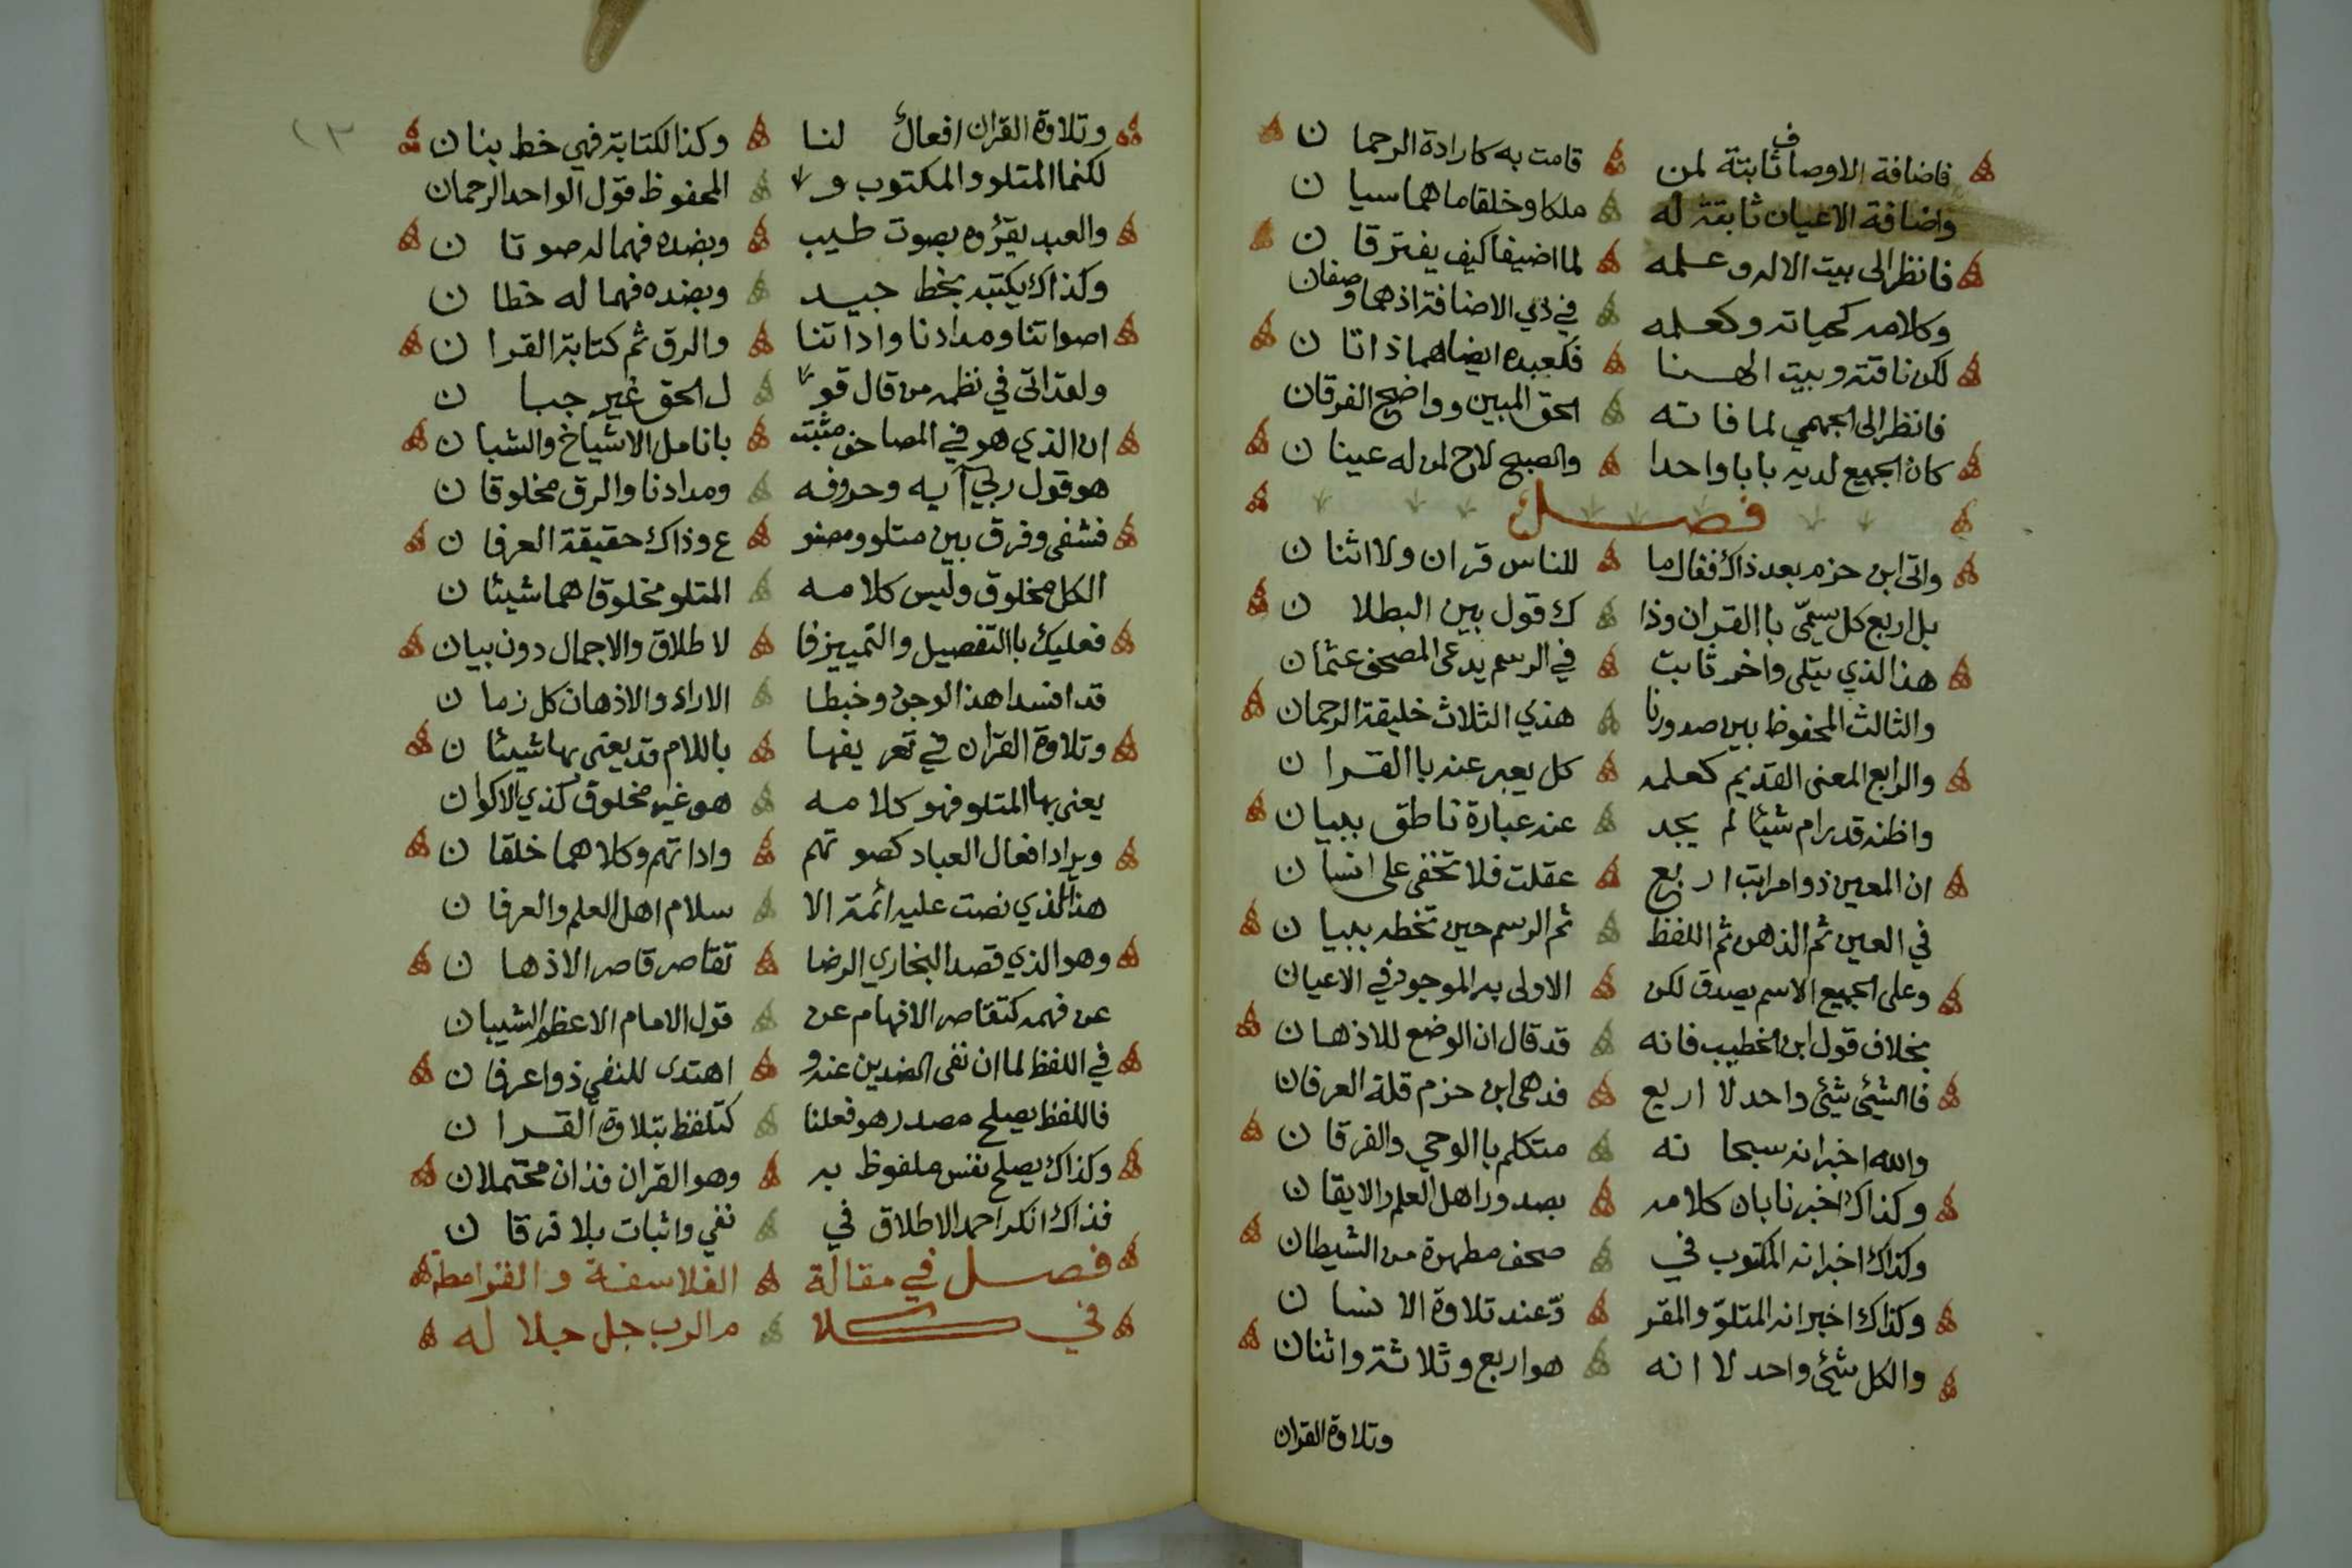 فاضافة الاوصاف ثابتة لمن قامت به كارادة الرحمان
واضافة الاعيان ثابتة له ملكا وخلقا ماهما سيان
فانظر الى بيت الاله وعلمه لما اضيفا كيف يفترقان
وكلامه كحياته وكعلمه في ذي الاضافة اذهما وصفان
لكن ناقته وبيت الهنا فكعبده ايضا هما ذاتان
فانظر الى الجهمي لما فاته الحق المبين وواضح الفرقان
كان الجميع لديه بابا واحدا والصبح لاح لمن له عينان
فصل
واتى ابن حزم بعد ذاك فقال ما للناس قران ولا اثنان
بل اربع كل سمّي باالقران وذا ك قول بين البطلان
هذا الذي يتلى واخر ثابت في الرسم يدعى المصحف عثمان
والثالث المحفوظ بين صدورنا هذي الثلاث خليقة الرحمان
والرابع المعنى القديم كعلمه كل يعبر عنه باالقران
واظنه قد رام شيئا لم يجد عنه عبارة ناطق ببيان
ان المعين ذو امراتب اربع عقلت فلا تخفى على انسان
في العين ثم الذهن ثم اللفظ ثم الرسم حين تخطه ببيان
وعلى الجميع الاسم يصدق لكن الاولى به الموجود في الاعيان
بخلاف قول ابن الخطيب فانه قد قال ان الوضع للاذهان
فالشيئ شيئ واحد لا اربع فدهى ابن حزم قلة العرفان
والله اخبر انه سبحانه متكلم باالوحي والفرقان
وكذاك اخبرنا بان كلامه بصدور اهل العلم والايقان
وكذاك اخبر انه المكتوب في صحف مطهرة من الشيطان
وكذاك اخبر انه المتلوّ والمقر وّ عند تلاوة الانسان
والكل شيئ واحد لا انه هو اربع وثلاثة واثنان
وتلاوة القران
وتلاوة القران افعال لنا وكذا الكتابة فهي خط بنان
لكنما المتلو والمكتوب و المحفوظ قول الواحد الرحمان
والعبد يقرؤه بصوت طيب وبضده فهما له صوتان
وكذاك يكتبه بخط جيد وبضده فهما له خطان
اصواتنا ومدادنا واداتنا والرق ثم كتابة القران
ولقد اتى في نظمه من قال قو ل الحق غير جبان
ان الذي هو في المصاحف مثبت بانامل الاشياخ والشبان
هو قول ربي آيه وحروفه ومدادنا والرق مخلوقان
فشفى وفرق بين متلو ومصنو ع وذاك حقيقة العرفان
الكل مخلوق وليس كلامه المتلو مخلوقا هما شيئان
فعليك باالتفصيل والتمييز فا لاطلاق والاجمال دون بيان
قد افسدا هذا الوجود وخبطا الاراء والاذهان كل زمان
وتلاوة القران في تعريفها باللام قد يعنى بها شيئان
يعنى بها المتلو فهو كلامه هو غير مخلوق كذي الاكوان
ويراد افعال العباد كصوتهم واداتهم وكلاهما خلقان
هذا الذي نصت عليه ائمة الا سلام اهل العلم والعرفان
وهو الذي قصد البخاري الرضا تقاصر قاصر الاذهان
عن فهمه كتقاصر الافهام عن قول الامام الاعظم الشيبان
في اللفظ لما ان نفى الضدين عنه و اهتدى للنفي ذوا عرفان
فاللفظ يصلح مصدر هو فعلنا كتلفظ بتلاوة القران
وكذاك يصلح نفس ملفوظ به وهو القران فذان محتملان
فذاك انكر احمد الاطلاق في نفي واثبات بلا فرقان
فصل في مقالة الفلاسفة والقرامطة
في كلا م الرب جل جلاله